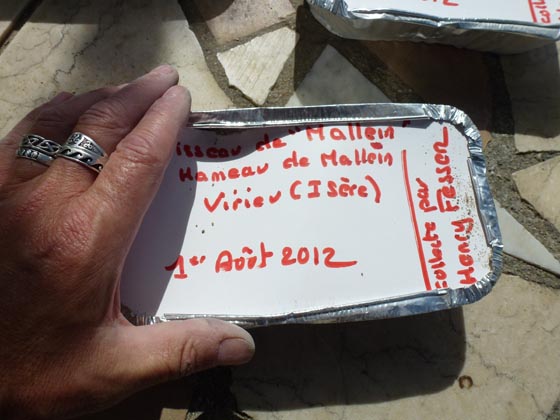 isseau de "Mallein"
Hameau de Mallein
Virieu (Isère)
1er Août 2012
collecté par
Henry Fessor